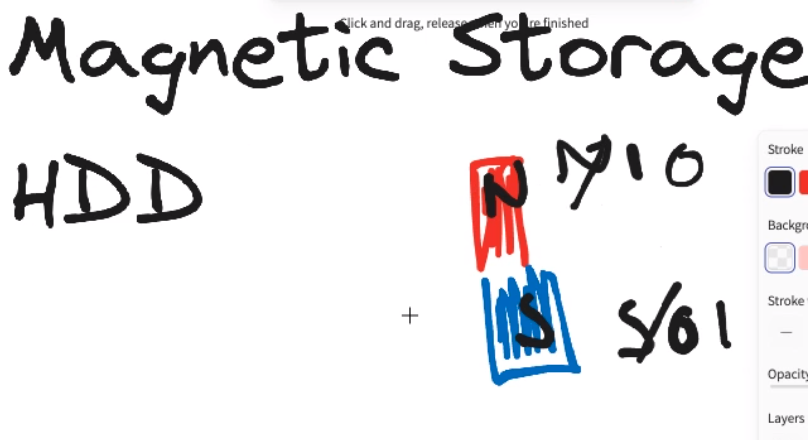 Click and drag, release when you're finished
Magnetic Storage
HDD
N
N 1 0
S
S 0 1
Stroke
Backgr
Stroke
Opacity
Layers